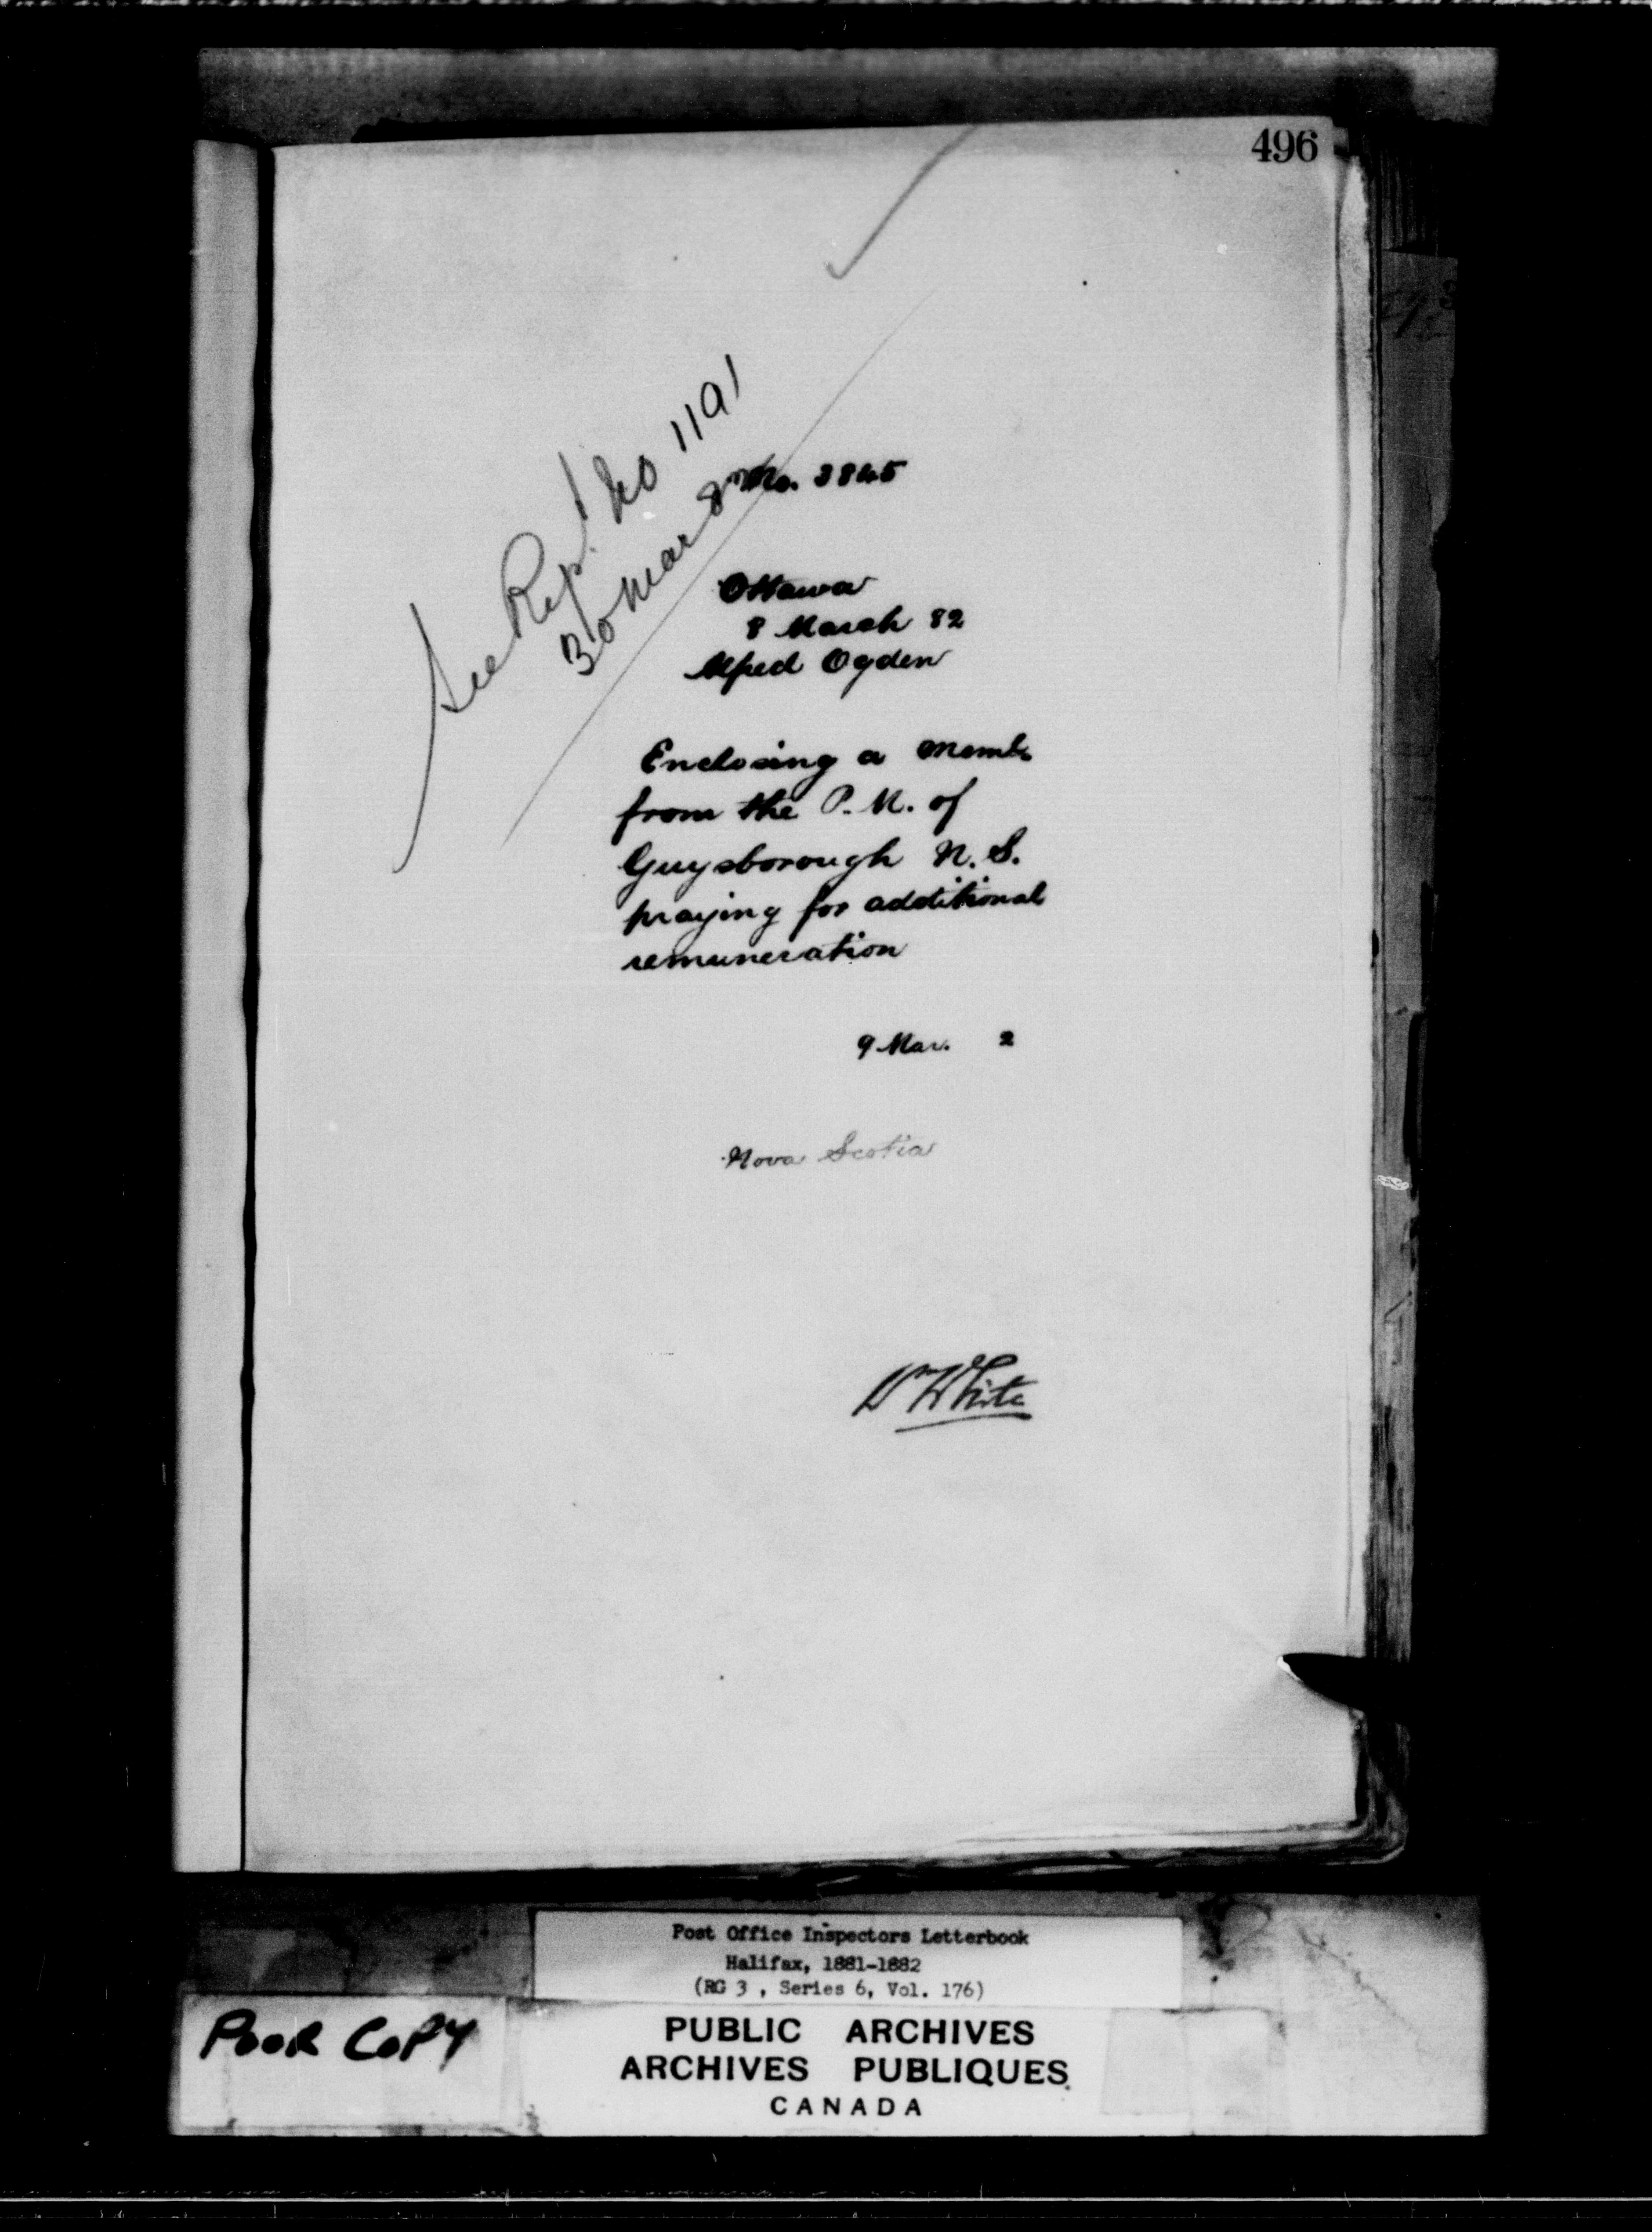 496
See Rep! No 1191
30 Mar 82
No. 3845
Ottawa
8 March 82
Alfred Ogden
Enclosing a Meml.
from the P. M. of
Guysborough N. S.
praying for additional
remuneration
9 Mar. 2
Nova Scotia
Wm White
Post Office Inspectors Letterbook
Halifax, 1881-1882
(RG 3 , Series 6, Vol. 176)
POOR COPY
PUBLIC ARCHIVES
ARCHIVES PUBLIQUES
CANADA